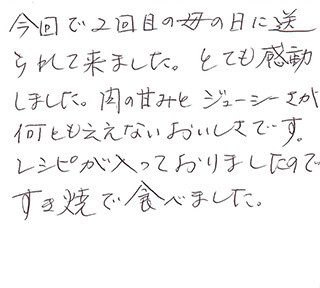 今回で2回目の母の日に送
られて来ました。とても感動
しました。肉の甘みとジューシーさが
何とも云えないおいしさです。
レシピが入っておりましたので
すき焼で食べました。